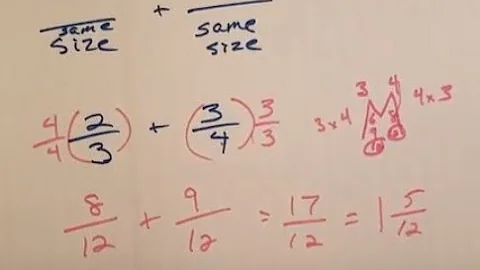 same size + same size
4/4 (2/3) + (3/4) 3/3
3 4
3 x 4 4 x 3
6 8
9 12
12
8/12 + 9/12 = 17/12 = 1 5/12